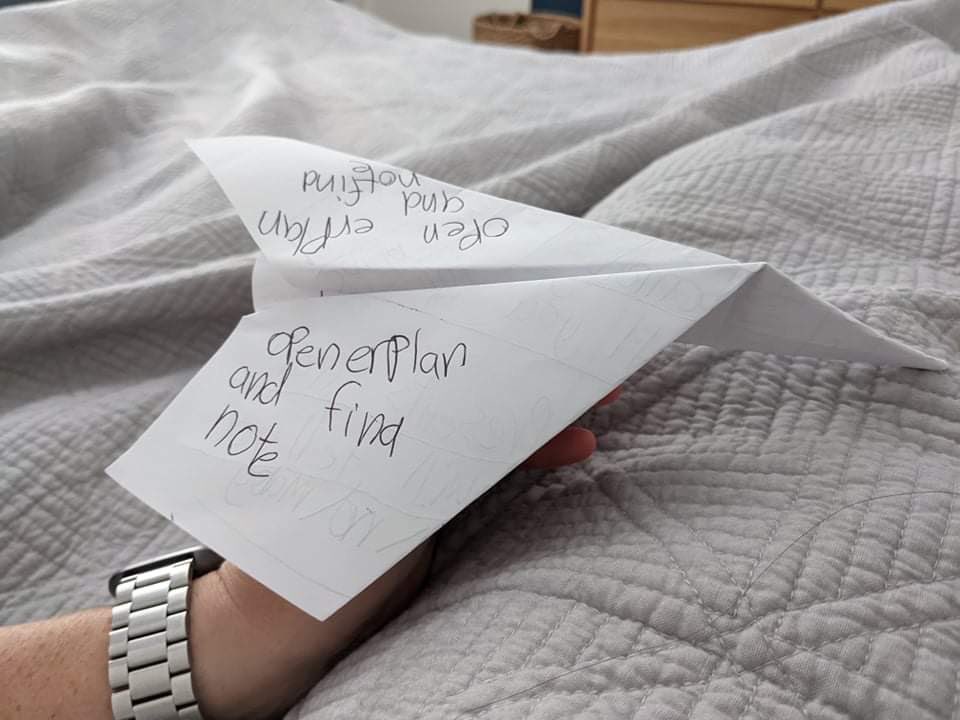 open erPlan
and find
note
openerPlan
and find
note